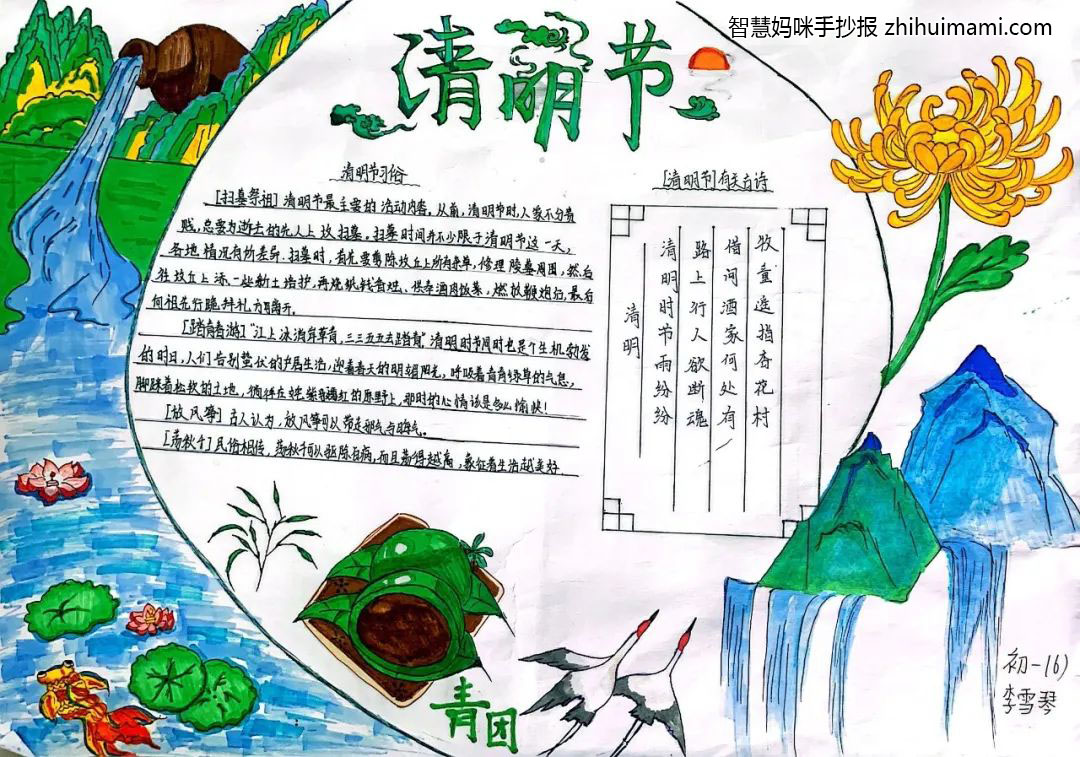 智慧妈咪手抄报 zhihuimami.com
清明节
清明节习俗
[扫墓祭祖] 清明节最主要的活动内容。从前，清明节时，人家不分贵
贱，总要为逝去的先人上坟扫墓。扫墓时间并不少限于清明节这一天，
各地情况有所差异。扫墓时，首先要剪除坟丘上所有杂草，修理陵墓周围，然后
往坟丘上添一些新土培护，再烧纸钱香烛、供奉酒肉饭菜，燃放鞭炮行，最后
向祖先行跪拜礼方可离开。
[踏青春游] "江上冰消岸草青，三三五五去踏青"。清明时节同时也是个生机勃发
的时日，人们告别蛰伏的户居生活，迎着春天的明媚阳光，呼吸着青青绿草的气息，
脚踩着松软的土地，徜徉在姹紫嫣红的原野上，那时的心情该是多么愉快！
[放风筝] 古人认为，放风筝可以带走邪气与晦气。
[荡秋千] 民俗相传，荡秋千可以驱除百病，而且荡得越高，象征着生活越美好
[清明节]有关古诗
清明
清明时节雨纷纷
路上行人欲断魂
借问酒家何处有
牧童遥指杏花村
青团
初一(6)
李雪琴